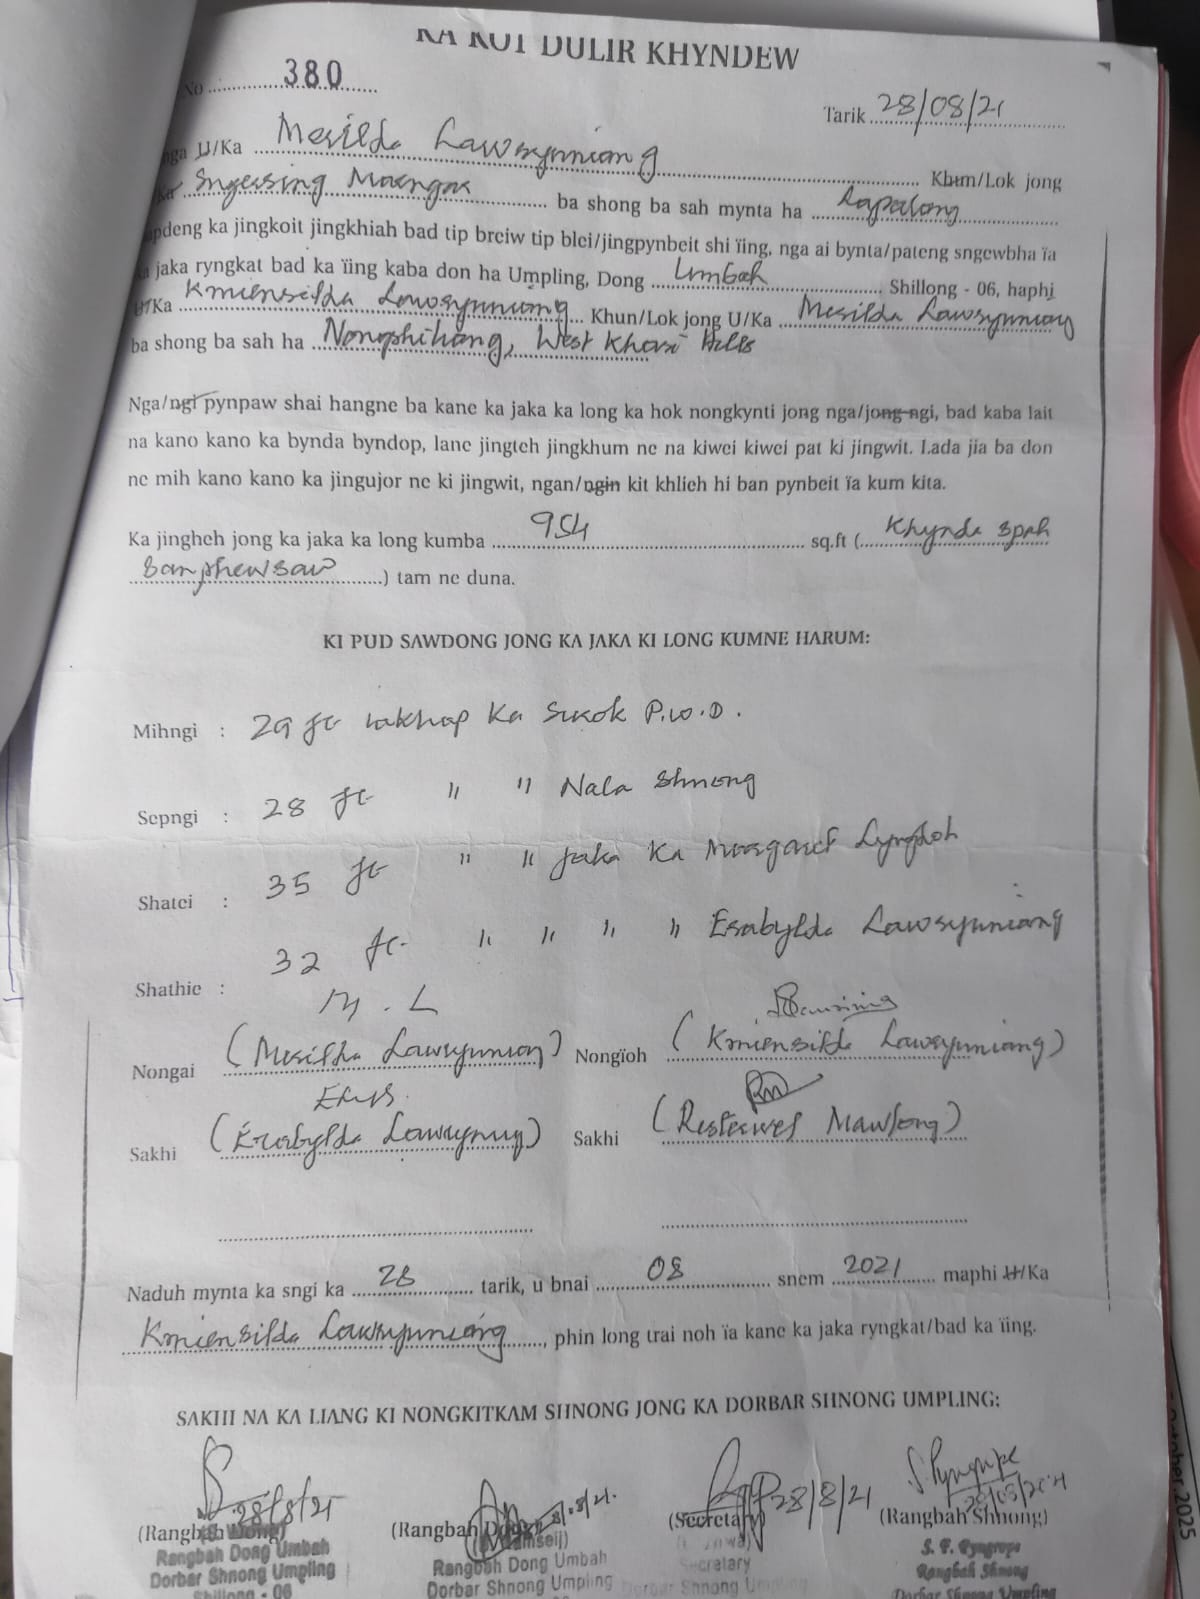 KA KOT DULIR KHYNDEW
No 380
Tarik 28/08/21
nga U/Ka Mesilda Lawsyunniang Khun/Lok jong
Sngeising Marngar ba shong ba sah mynta ha Lapalang
pdeng ka jingkoit jingkhiah bad tip breiw tip blei/jingpynbeit shi ïing, nga ai bynta/pateng sngewbha ïa
jaka ryngkat bad ka ïing kaba don ha Umpling, Dong Umbah Shillong - 06, haphi
U/Ka Kmiensilda Lawsyunniang Khun/Lok jong U/Ka Mesilda Lawsyunniang
ba shong ba sah ha Nongphihang, West Khasi Hills
Nga/ngi pynpaw shai hangne ba kane ka jaka ka long ka hok nongkynti jong nga/jong ngi, bad kaba lait
na kano kano ka bynda byndop, lane jingteh jingkhum ne na kiwei kiwei pat ki jingwit. Lada jia ba don
ne mih kano kano ka jingujor ne ki jingwit, ngan/ngin kit khlieh hi ban pynbeit ïa kum kita.
Ka jingheh jong ka jaka ka long kumba 954 sq.ft (Khynde spah
sanphewsaw) tam ne duna.
KI PUD SAWDONG JONG KA JAKA KI LONG KUMNE HARUM:
Mihngi : 29 ft iakhap Ka Surok P.W.D.
Sepngi : 28 ft " " Nala Shnong
Shatei : 35 ft " " Jaka Ka Margaret Lyngdoh
Shathie : 32 ft " " " " Erabylda Lawsyunniang
M. L
Nongai (Mesilda Lawsyunniang) Nongïoh (Kmiensilda Lawsyunniang)
Sakhi (Erabylda Lawsyunniang) Sakhi (Resterwel Mawlong)
Naduh mynta ka sngi ka 28 tarik, u bnai 08 snem 2021 maphi U/Ka
Kmiensilda Lawsyunniang, phin long trai noh ïa kane ka jaka ryngkat/bad ka ïing.
SAKHI NA KA LIANG KI NONGKITKAM SHNONG JONG KA DORBAR SHNONG UMPLING:
28/8/21 28/8/21 S Pyngrope 28/08/2021
(Rangbah Dong) (Rangbah Dong) (Secretary) (Rangbah Shnong)
Rangbah Dong Umbah Rangbah Dong Umbah Secretary S. F. Pyngrope
Dorbar Shnong Umpling Dorbar Shnong Umpling Dorbar Shnong Umpling Rangbah Shnong
Shillong - 06 Dorbar Shnong Umpling
October, 2025